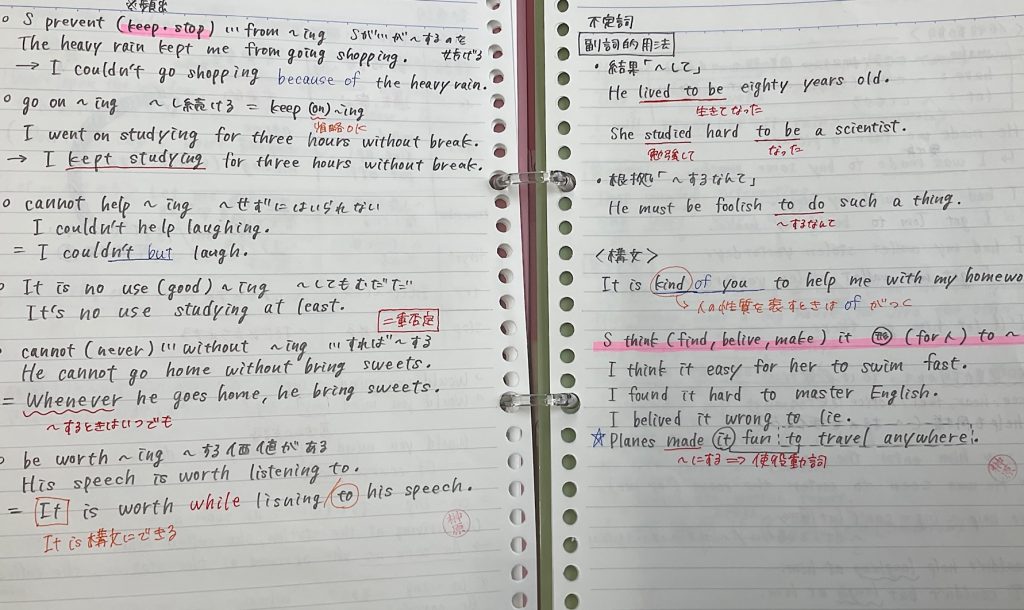 ※頻出
○ S prevent (keep・stop) … from ~ing Sが…が~するのを
The heavy rain kept me from going shopping. 妨げる
→ I couldn't go shopping because of the heavy rain.
○ go on ~ing ~し続ける = keep (on) ~ing
省略OK
I went on studying for three hours without break.
→ I kept studying for three hours without break.
○ cannot help ~ing ~せずにはいられない
I couldn't help laughing.
= I couldn't but laugh.
○ It is no use (good) ~ing ~してもむだだ
It's no use studying at least.
二重否定
○ cannot (never) … without ~ing …すれば~する
He cannot go home without bring sweets.
= Whenever he goes home, he bring sweets.
~するときはいつでも
○ be worth ~ing ~する価値がある
His speech is worth listening to.
= It is worth while lisning to his speech.
It is 構文にできる
榊原
不定詞
副詞的用法
・結果「~して」
He lived to be eighty years old.
生きてなった
She studied hard to be a scientist.
勉強して なった
・根拠「~するなんて」
He must be foolish to do such a thing.
~するなんて
<構文>
It is kind of you to help me with my homewo
→ 人の性質を表すときは of がつく
S think (find, belive, make) it 形 (for 人) to ~
I think it easy for her to swim fast.
I found it hard to master English.
I belived it wrong to lie.
☆ Planes made it fun to travel anywhere.
~にする ⇒ 使役動詞
榊原